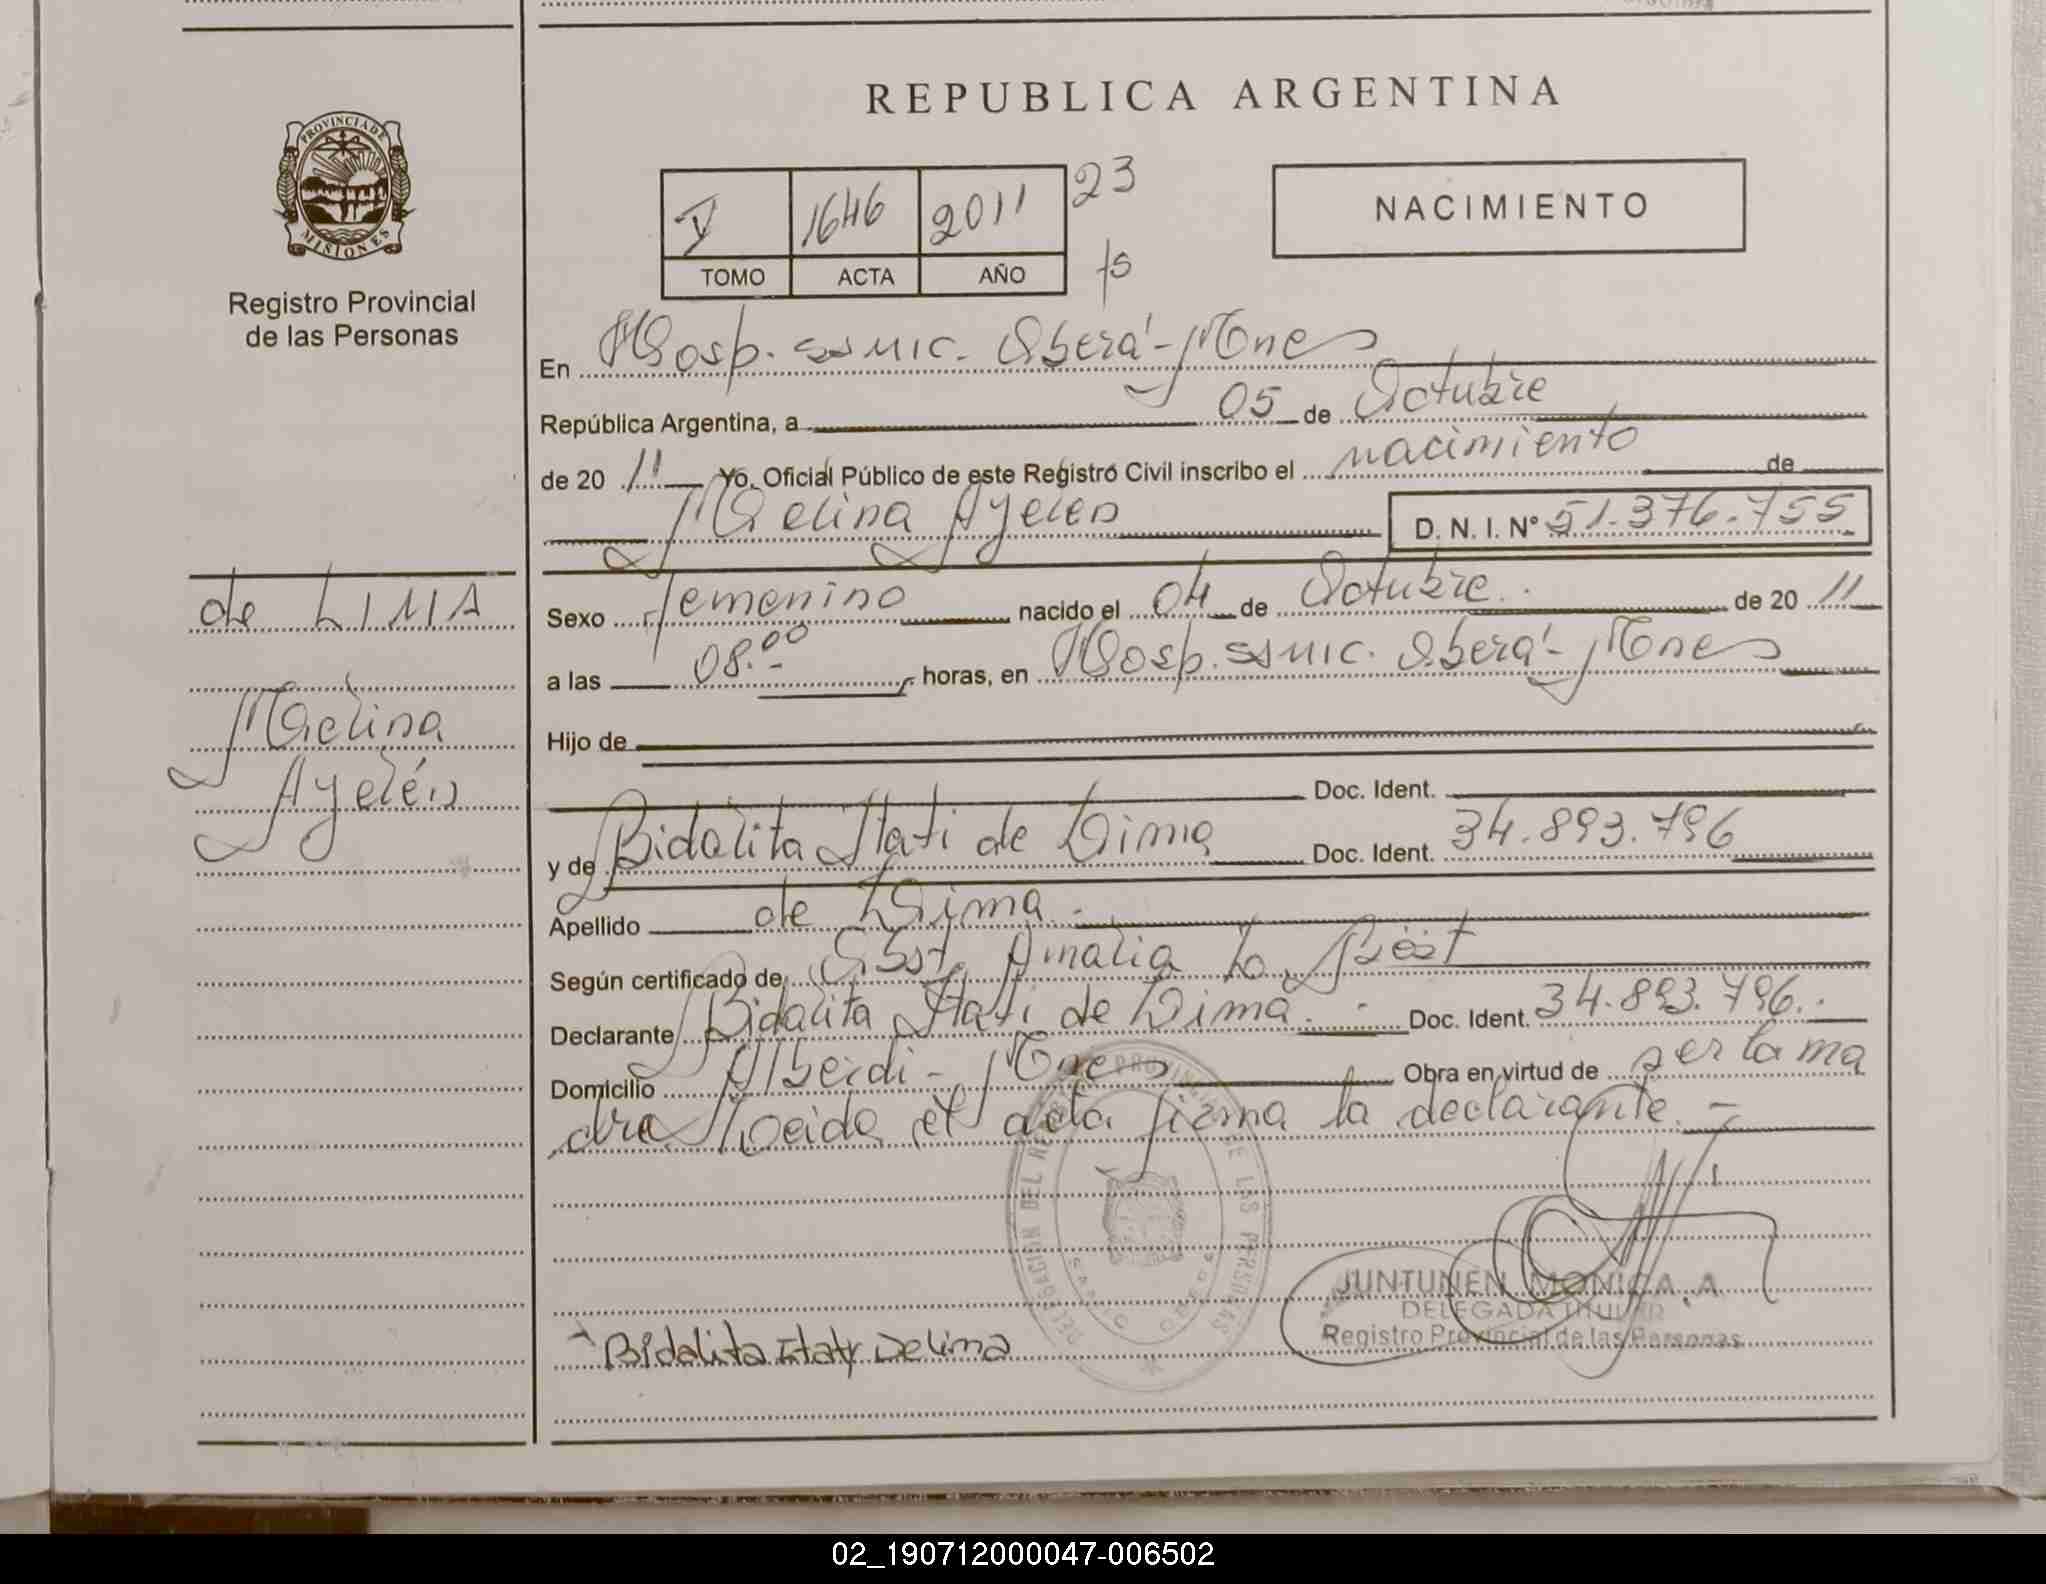 REPUBLICA ARGENTINA
PROVINCIA DE
MISIONES
Registro Provincial
de las Personas
V 1646 2011 23
TOMO ACTA AÑO
NACIMIENTO
En Hosp. SSMIC. Oberá - Mnes
República Argentina, a 05 de Octubre
de 20 11 Yo, Oficial Público de este Registro Civil inscribo el nacimiento de
Melina Ayelen D. N. I. Nº 51.376.755
de LIMA
Melina
Ayelén
Sexo Femenino nacido el 04 de Octubre. de 20 11
a las 08:00 horas, en Hosp. SSMIC. Oberá - Mnes
Hijo de
Doc. Ident.
y de Bidalita Itati de Lima Doc. Ident. 34.893.796
Apellido de Lima.-
Según certificado de Obst. Amalia
Declarante Bidalita Itati de Lima.- Doc. Ident. 34.893.796.-
Domicilio Alberdi - Mnes Obra en virtud de ser la ma
dre Leida el acta firma la declarante.-
DELEGACION DEL REGISTRO PROVINCIAL DE LAS PERSONAS
JUNTUNEN MONICA. A
DELEGADA TITULAR
Registro Provincial de las Personas
Bidalita Itaty De Lima
02_190712000047-006502